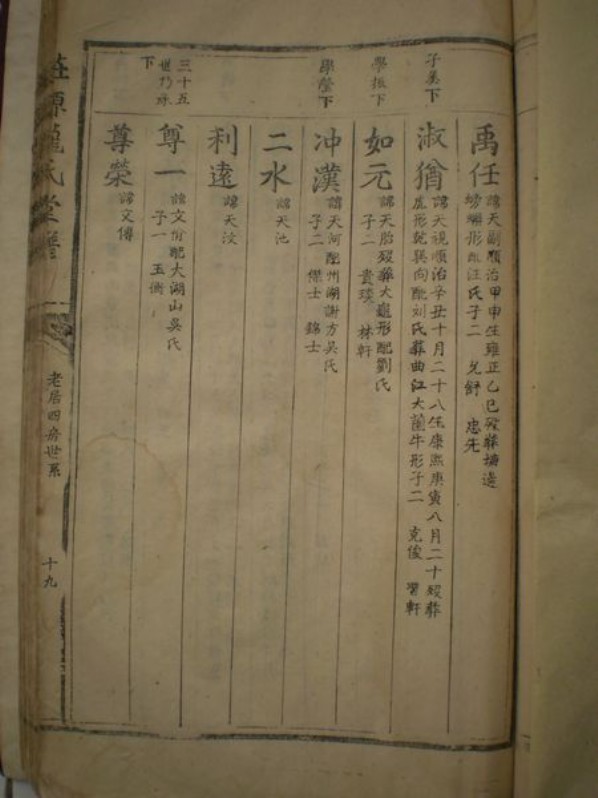 子美下
禹任
諱天嗣順治甲申生雍正乙巳歿葬塘邊
螃蠏形配汪氏子二 允舒 忠先
淑猶
諱天視順治辛丑十月二十八生康熙庚寅八月二十歿葬
虎形乾巽向配刘氏葬曲江大 牛形子二 克俊 習軒
學振下
如元
諱天胎歿葬大 形配劉氏
子二 貴瑛 林軒
學瑩下
冲漢
諱天河配州湖謝方吳氏
子二 傑士 錦士
二水
諱天池
利遠
諱天汶
三十五
世乃
下
尊一
諱文 配大湖山吳氏
子一 玉衡
尊榮
諱文傳
莊源 氏 譜
老居四房世系
十九